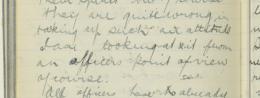 they are quite wrong in
taking up such an attitude
I am looking at it from
an officers point of view
of course.
All officers have already